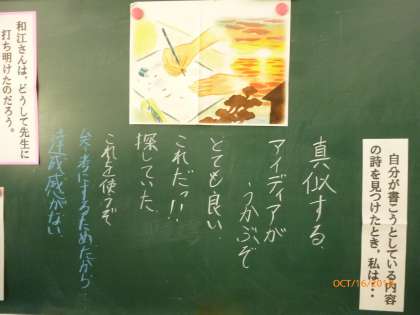 自分が書こうとしている内容
の詩を見つけたとき、私は・・・
真似する
アイディアが
うかぶぞ
とても良い
これだっ!!
探していた
これを使うぞ
参考にするためだから
達成感がない
和江さんは、どうして先生に
打ち明けたのだろう。
OCT/16/201